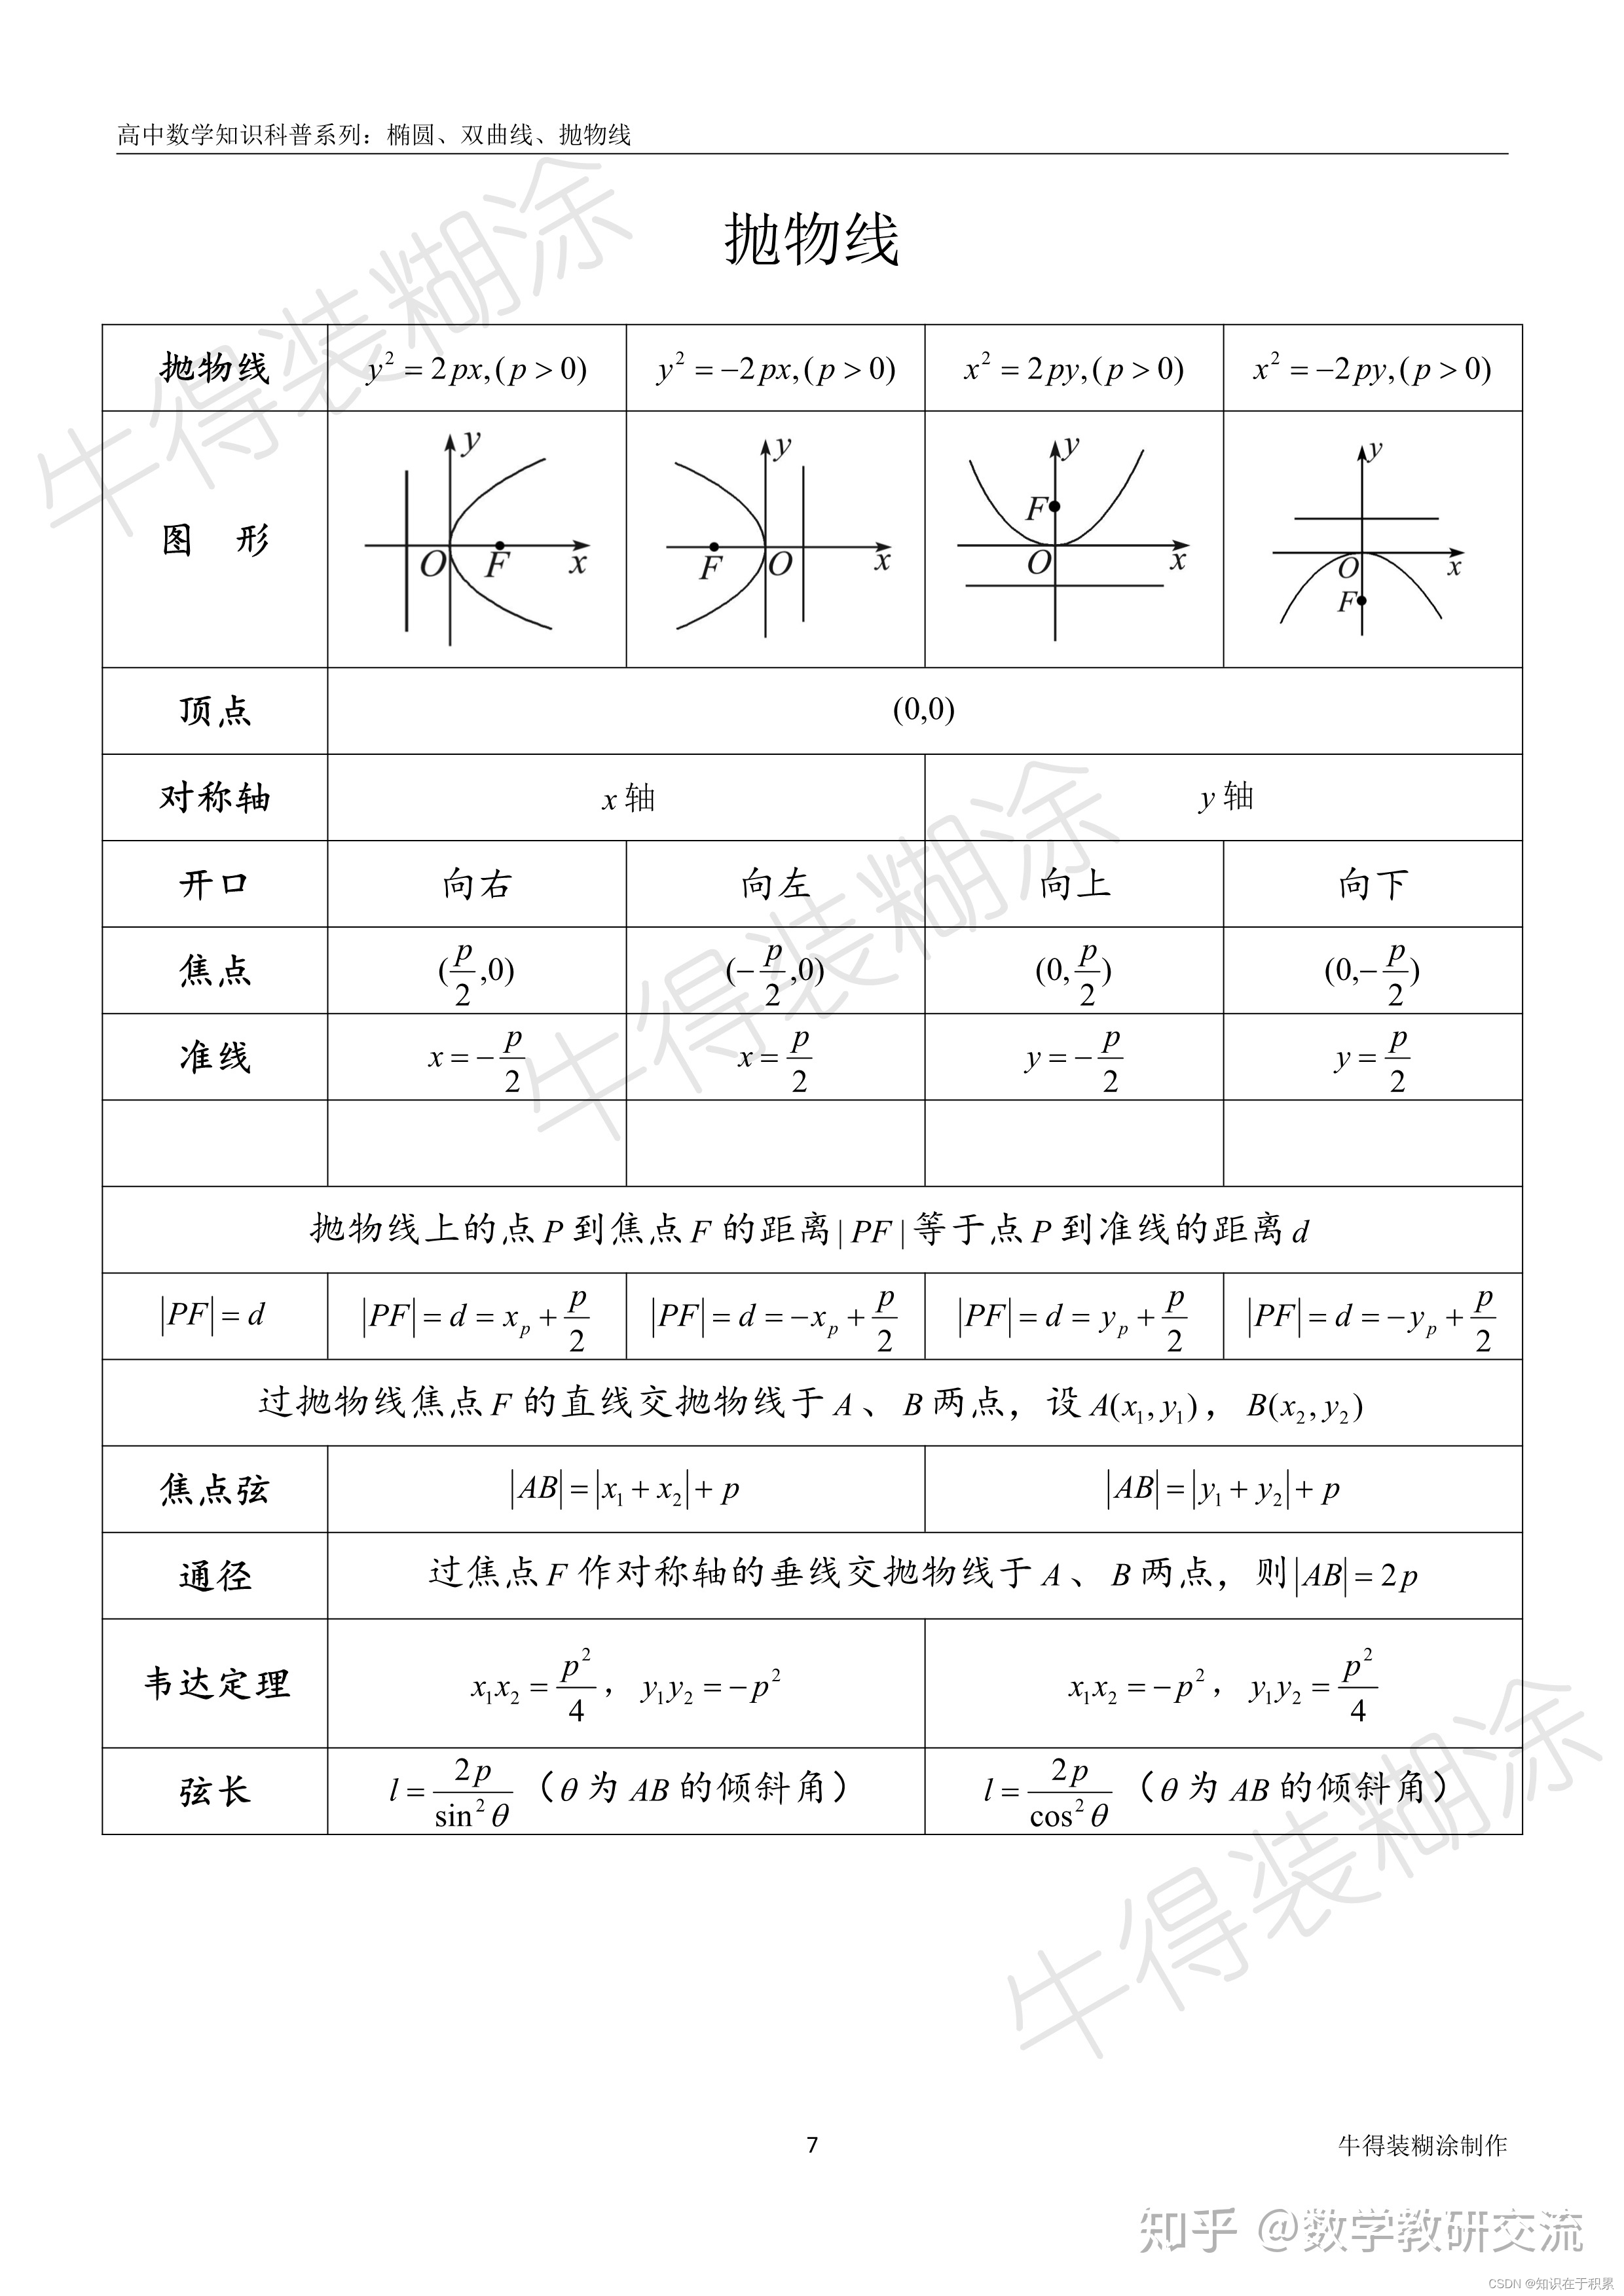 高中数学知识科普系列：椭圆、双曲线、抛物线
抛物线
抛物线 y²=2px,(p>0) y²=−2px,(p>0) x²=2py,(p>0) x²=−2py,(p>0)
图 形 y O F x y F O x y F O x y O F x
顶点 (0,0)
对称轴 x轴 y轴
开口 向右 向左 向上 向下
焦点 (p/2,0) (−p/2,0) (0,p/2) (0,−p/2)
准线 x=−p/2 x=p/2 y=−p/2 y=p/2
抛物线上的点P到焦点F的距离|PF|等于点P到准线的距离d
|PF|=d |PF|=d=xₚ+p/2 |PF|=d=−xₚ+p/2 |PF|=d=yₚ+p/2 |PF|=d=−yₚ+p/2
过抛物线焦点F的直线交抛物线于A、B两点，设A(x₁,y₁)，B(x₂,y₂)
焦点弦 |AB|=|x₁+x₂|+p |AB|=|y₁+y₂|+p
通径 过焦点F作对称轴的垂线交抛物线于A、B两点，则|AB|=2p
韦达定理 x₁x₂=p²/4，y₁y₂=−p² x₁x₂=−p²，y₁y₂=p²/4
弦长 l=2p/sin²θ（θ为AB的倾斜角） l=2p/cos²θ（θ为AB的倾斜角）
牛得装糊涂
牛得装糊涂
牛得装糊涂
7 牛得装糊涂制作
知乎 @数学教研交流
CSDN @知识在于积累